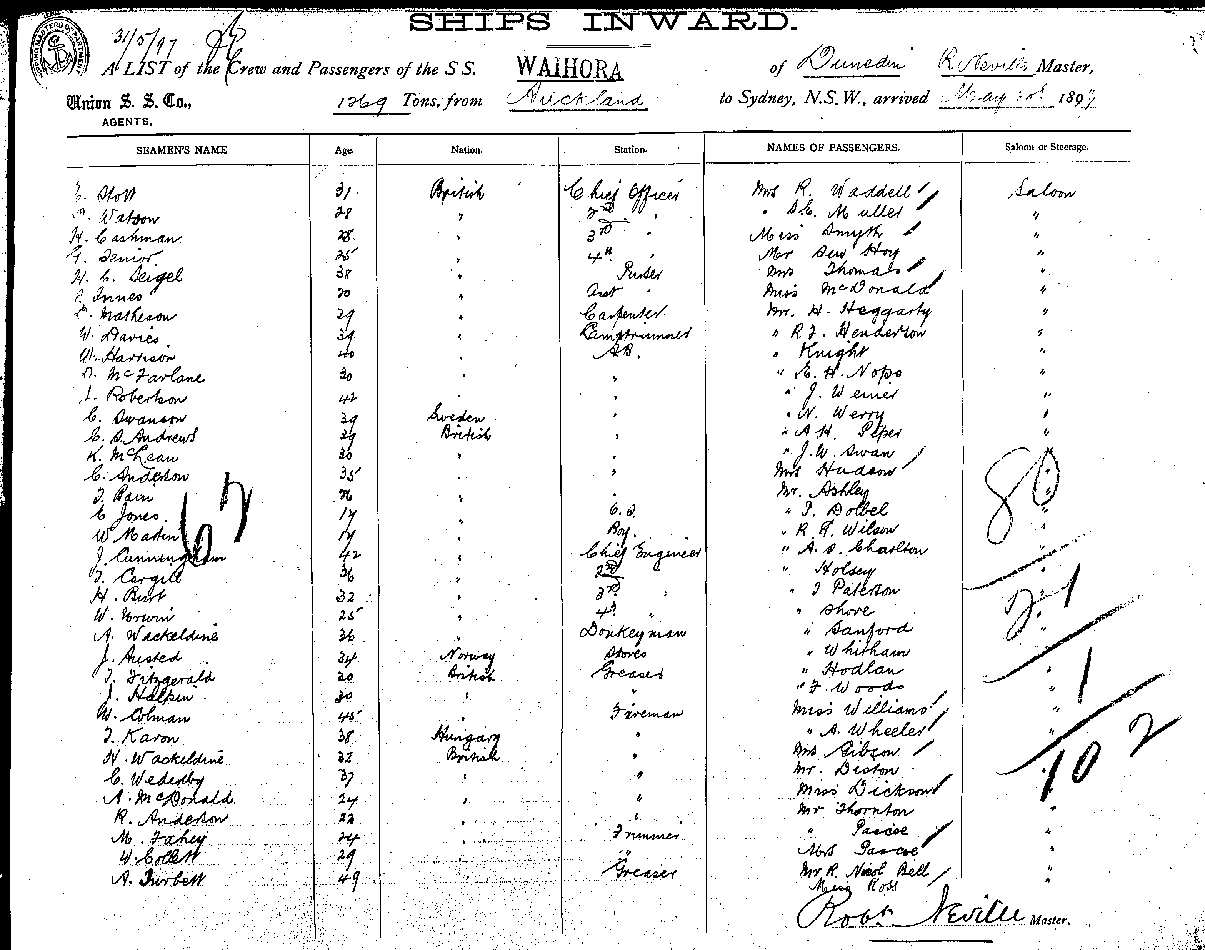 SHIPS INWARD.
31/5/97
A LIST of the Crew and Passengers of the S S. WAIHORA of Dunedin R. Neville Master,
Union S. S. Co., 1269 Tons, from Auckland to Sydney, N.S.W., arrived May 1897
AGENTS,
SEAMEN'S NAME Age. Nation. Station. NAMES OF PASSENGERS. Saloon or Steerage.
Stott 31 British Chief Officer Mrs R. Waddell Saloon
Watson 28 " 2nd " " Muller "
H. Cashman 28 " 3rd " Miss Smyth "
Senior 25 " 4th " Mr Sew Hoy "
H. C. Seigel 38 " Purser Mrs Thomas "
Innes 20 " Asst " Miss McDonald "
Matheson 29 " Carpenter Mr. H. Heggarty "
W. Davies 39 " Lamptrimmer " R J. Henderson "
W. Harrison 40 " A.B. " Knight "
McFarlane 30 " " " E. H. Nops "
Robertson 42 " " " J. Werner "
C. Swanson 39 Sweden " " W. Werry "
C. S. Andrews 29 British " " A H. Piper "
K. McLean 30 " " " J. W. Swan "
C. Anderson 35 " " Mrs Hudson
Bain " " Mr. Ashley
C Jones 17 " O.S. " Dolbel
W Martin 17 " Boy " R. R. Wilson
J. Cunningham 42 " Chief Engineer " A. S. Charlton
Cargill 36 " 2nd " Holsey
H. Burt 32 " 3rd " " Paterson
W. Irwin 25 " 4th " " Shore
A. Wackeldine 36 " Donkeyman " Sanford
J. Austed 34 Norway Stores " Whitham
Fitzgerald 20 British Greaser " Hodlan
J. Halpin 30 " " " F. Woods
W. Colman 45 " Fireman Miss Williams
Karon 38 Hungary " " A. Wheeler
H. Wackeldine 32 British " Mrs Gibson
C. Wederby 37 " " Mr. Diston
A. McDonald 24 " " Miss Dickson
R. Anderson 22 " " Mr Thornton "
M. Fahey 24 " Trimmer " Pascoe "
W. Collett 29 " " Mrs Pascoe "
A. Turbett 49 " Greaser Mr R. Bell "
Miss Ross
67
80
21
1
102
Robt Neville Master.